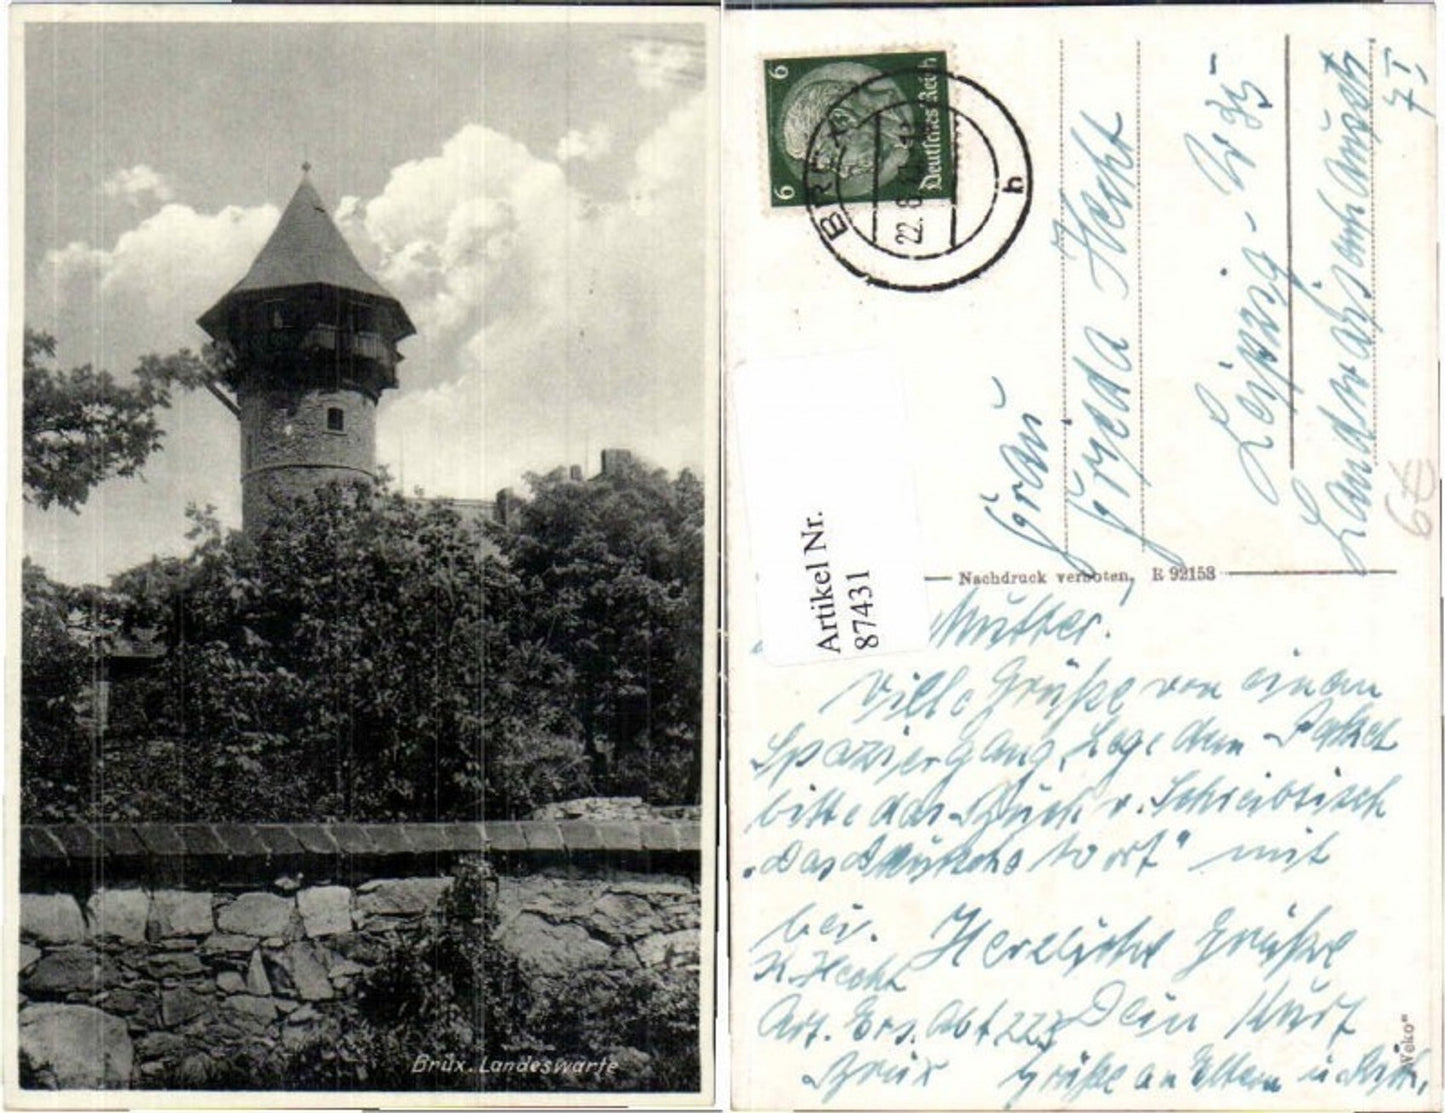 Brüx. Landeswarte
6 Deutsches Reich 6
22.8.
h
Frau
Gryeda Hecht
Leipzig-W 35
Artikel Nr.
87431
Nachdruck verboten. R 92153
Mutter.
Viele Grüße von einem
Spaziergang. Lege dem Paket
bitte das Buch v. Schreibtisch
„Das Deutsche Wort“ mit
bei. Herzliche Grüße
K. Hecht
Art. Ers. Abt 223 Dein Kurt
Brüx Grüße an Eltern u.
6€
„Weko“